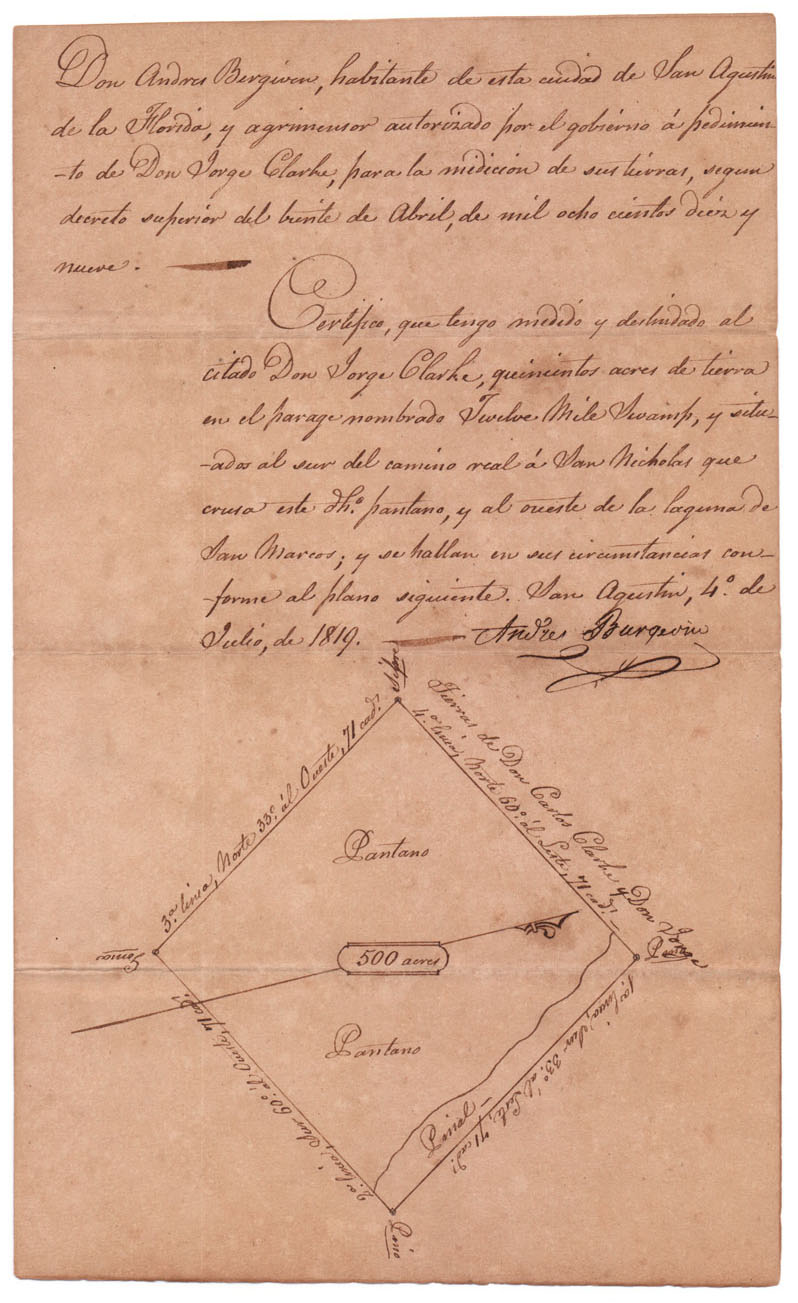 Don Andres Bergiven, habitante de esta ciudad de San Agustin
de la Florida, y agrimensor autorizado por el gobiérno á pedimien-
-to de Don Jorge Clarke, para la midicion de sus tiérras, segun
decreto superiór del beinte de Abril, de mil ocho cientos diéz y
nueve.
Certifico, que tengo medido y deslindado al
citado Don Jorge Clarke, quinientos acres de tiérra
en el parage nombrado Twelve Mile Swamp, y situ-
-ados al sur del camino real á San Nicholas que
crusa este dho. pantano, y al oueste de la laguna de
San Marcos; y se hallan en sus circumstancias con-
-forme al plano siguiente. San Agustin, 4º. de
Julio, de 1819. Andres Burgevin
Tierras de Don Carlos Clarke y Don Jorge
4ª. linea, Norte 60º. ál Leste, 71 cads.
3ª. linea, Norte 33º. ál Oueste, 71 cads.
Pantano
500 acres
Pantano
Pinal
1ª. linea, Sur 33º. al Leste, 71 cads.
2ª. linea, Sur 60º. al Oueste, 71 cads.
Pino